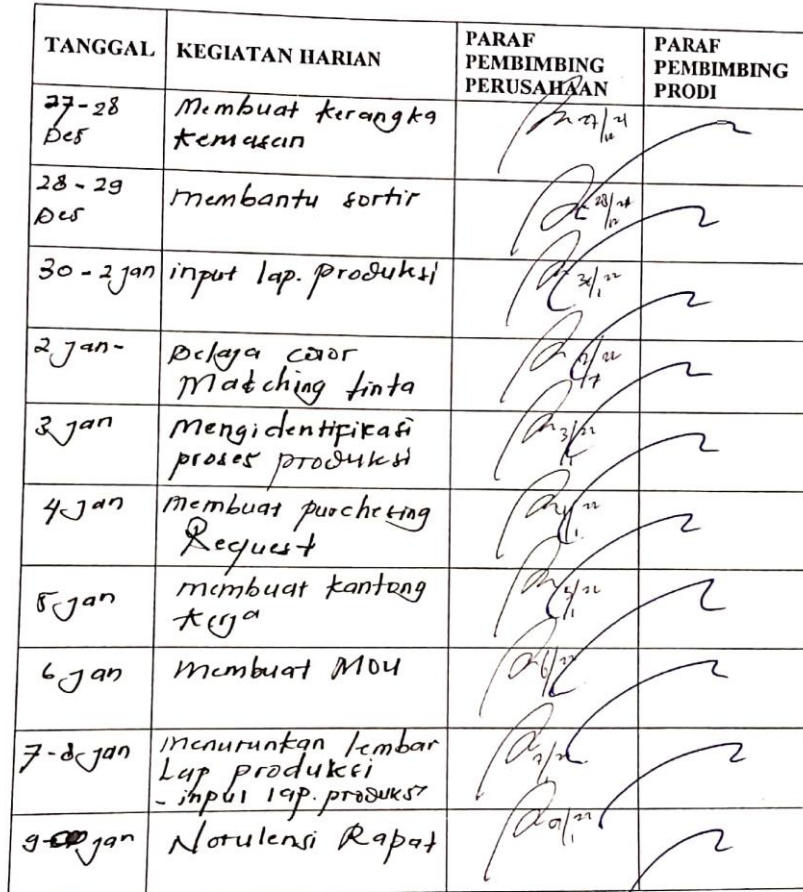 TANGGAL KEGIATAN HARIAN PARAF PEMBIMBING PERUSAHAAN PARAF PEMBIMBING PRODI
27-28 Des Membuat kerangka kemasan 27/12 21
28-29 Des membantu sortir 28/12 21
30-2 jan input lap. produksi
2 jan- Belaja color Matching tinta
3 jan Mengidentifikasi proses produksi 3/1 22
4 jan membuat purchesing Request
5 jan membuat kantong kerja 5/1 22
6 jan membuat MOU
7-8 jan menurunkan lembar Lap produksi
- input lap. produksi
9 jan Notulensi Rapat 9/1 22